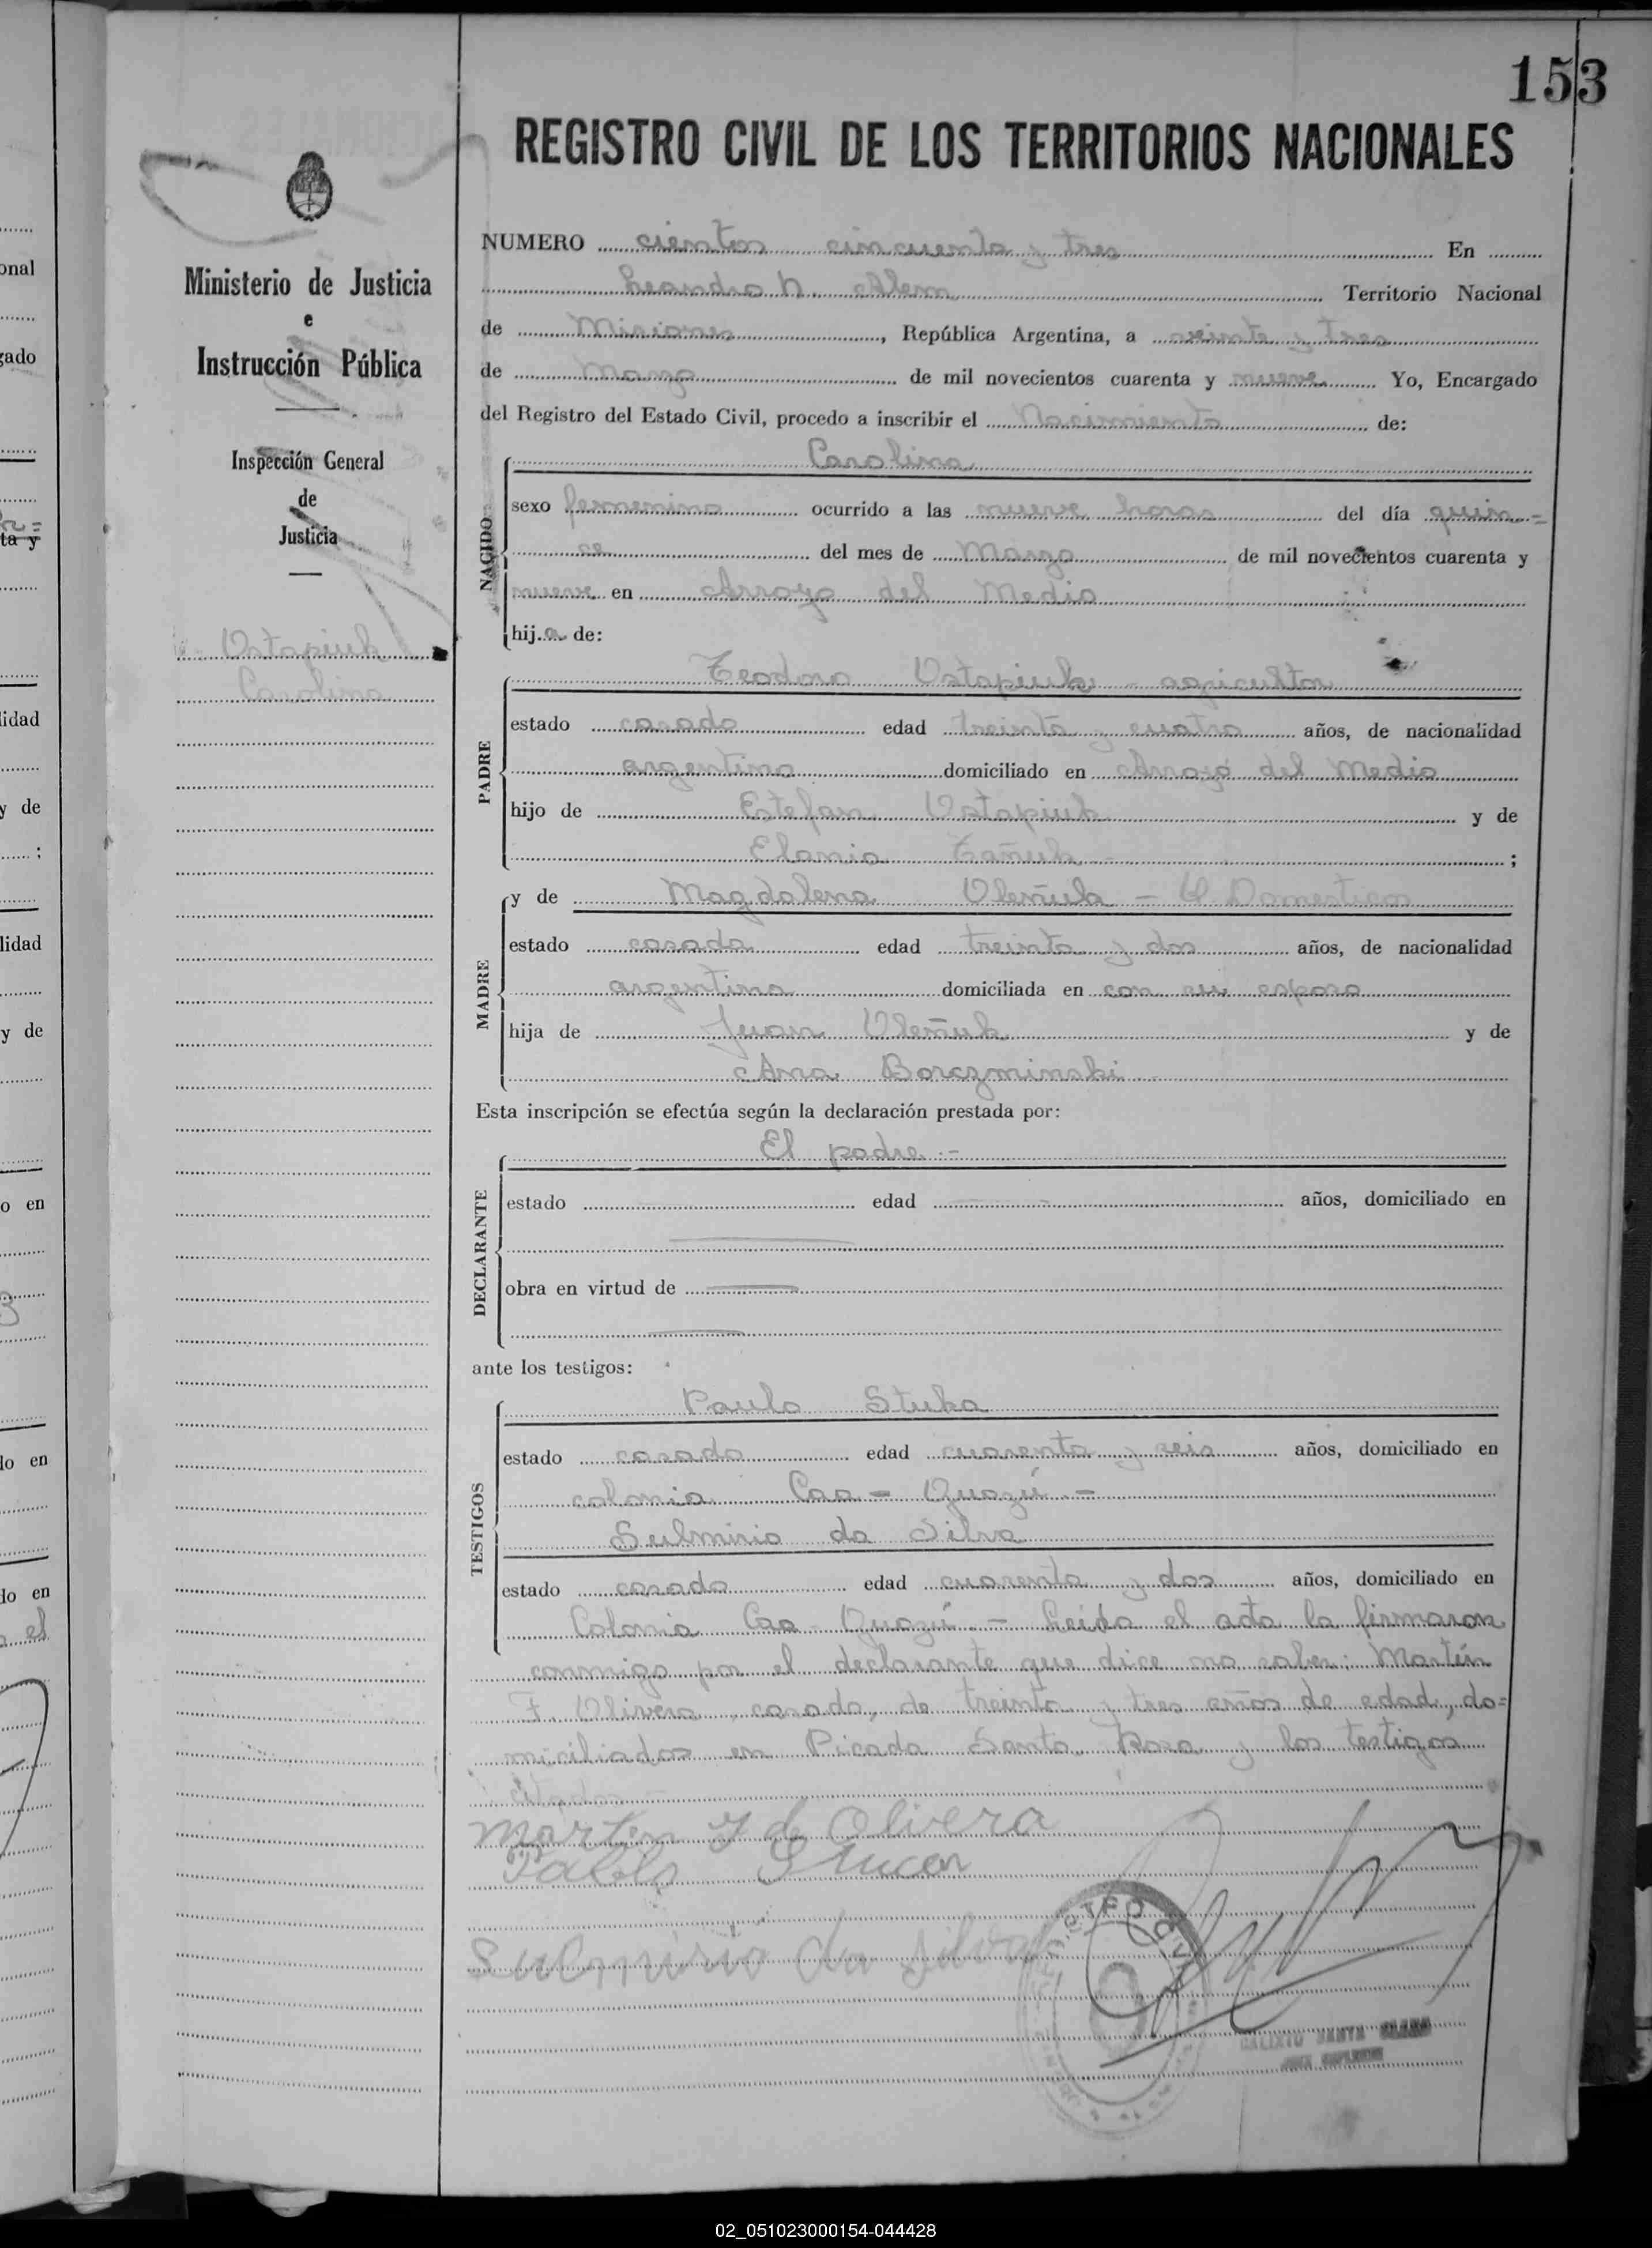 153
REGISTRO CIVIL DE LOS TERRITORIOS NACIONALES
Ministerio de Justicia
e
Instrucción Pública
Inspección General
de
Justicia
Ostapiuk
Carolina
NUMERO cientos cincuenta y tres En
Leandro N. Alem Territorio Nacional
de Misiones, República Argentina, a veinte y tres
de Marzo de mil novecientos cuarenta y nueve Yo, Encargado
del Registro del Estado Civil, procedo a inscribir el Nacimiento de:
NACIDO
Carolina
sexo femenino ocurrido a las nueve horas del día quin=
ce del mes de Marzo de mil novecientos cuarenta y
nueve en Arroyo del Medio
hija de:
PADRE
Teodoro Ostapiuk - agricultor
estado casado edad treinta y cuatro años, de nacionalidad
argentino domiciliado en Arroyo del Medio
hijo de Estefan Ostapiuk y de
Elania ;
MADRE
y de Magdalena Oleñuk - Q. Domesticos
estado casada edad treinta y dos años, de nacionalidad
argentina domiciliada en con su esposo
hija de Juan Oleñuk y de
Ana Borczminski
Esta inscripción se efectúa según la declaración prestada por:
DECLARANTE
El padre.-
estado edad años, domiciliado en
obra en virtud de
ante los testigos:
TESTIGOS
Paulo Stuka
estado casado edad cuarenta y seis años, domiciliado en
colonia Caa-Guazú.-
Sulmirio da Silva
estado casado edad cuarenta y dos años, domiciliado en
Colonia Caa-Guazú.- Leida el acta la firmaron
conmigo por el declarante que dice no saber: Martín
F. Olivera, casado, de treinta y tres años de edad, do=
miciliados en Picada Santa Rosa y los testigos
citados
Martin de Olivera
Pablo
Sulmirio da Silva
REGISTRO CIVIL
CALIXTO SANTA CLARA
JUEZ SUPLENTE
onal
gado
ta y
lidad
y de
;
lidad
y de
o en
3
lo en
lo en
el
02_051023000154-044428